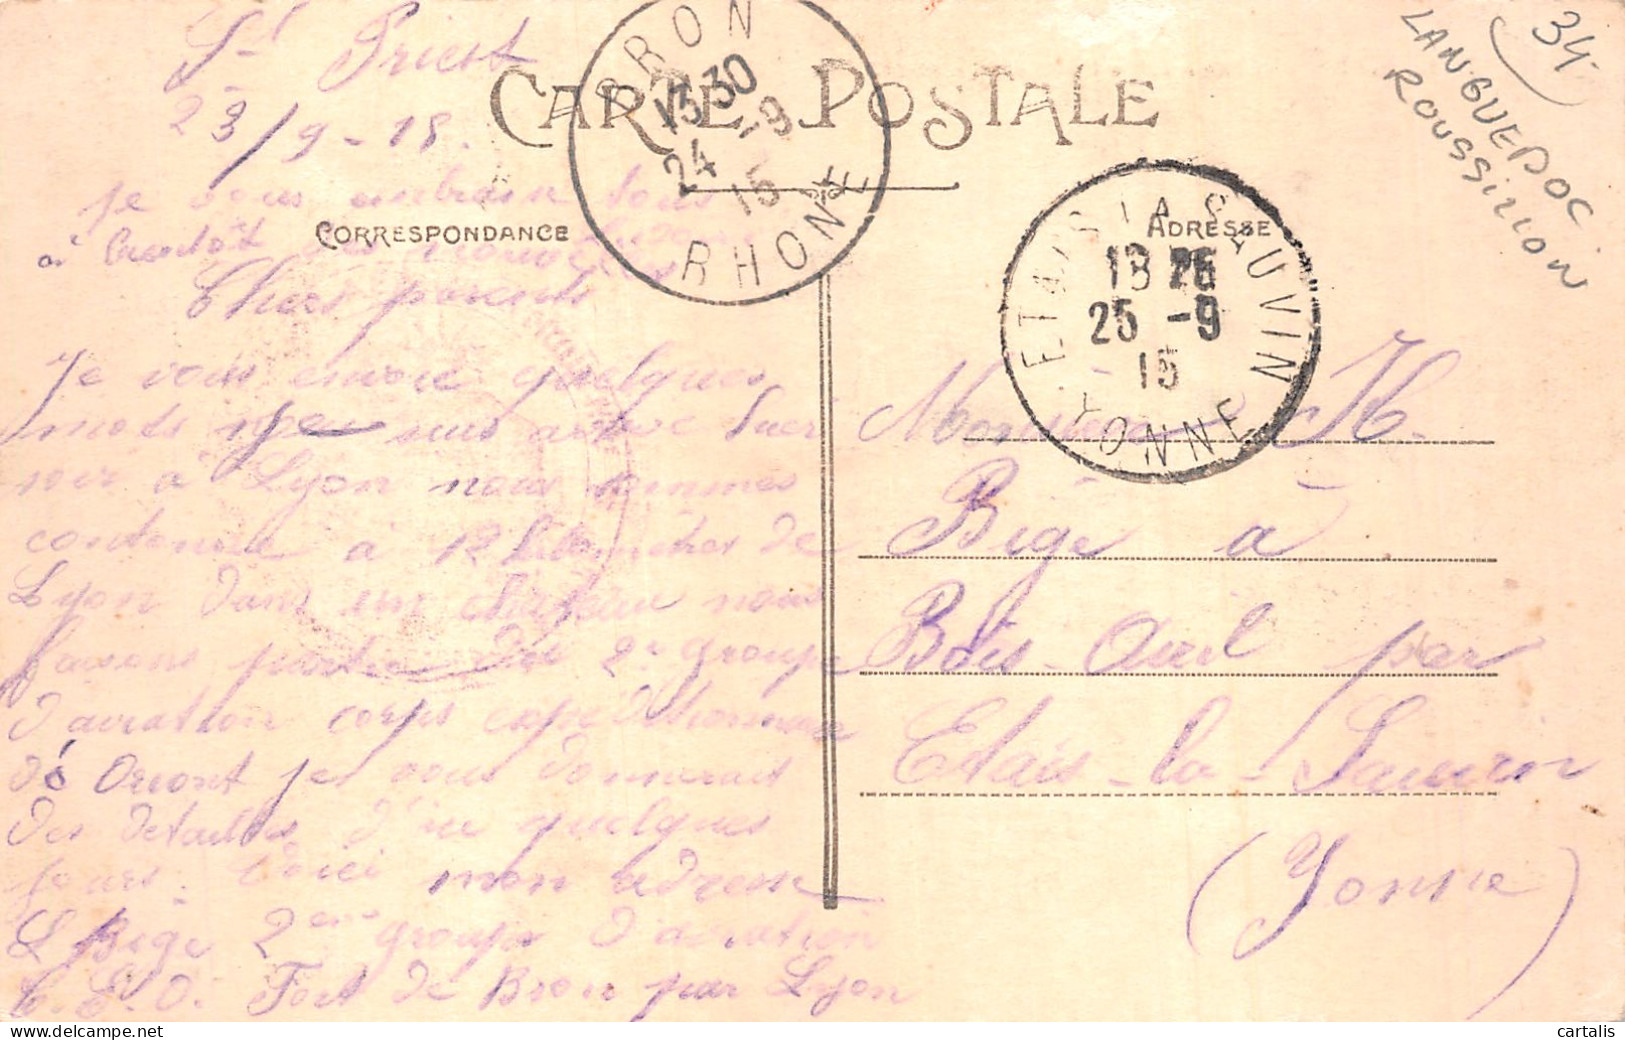 St Priest
23/9-15.
CARTE POSTALE
BRON
13 30
24 -9
15
RHONE
34
LANGUEDOC
ROUSSILLON
je vous embrasse tous
à bientôt
CORRESPONDANCE
ADRESSE
ETAIS-LA-SAUVIN
25 -9
15
YONNE
Chers parents
Je vous envoie quelques
mots
soir à Lyon nous sommes
à 12 kilomètres de
Lyon dans un château nous
faisons partie du 2e groupe
d'aviation corps expeditionnaire
d'Orient je vous donnerait
des detailles d'ici quelques
jours. Voici mon adresse
L Bige 2eme groupe d'aviation
C. E. O. Fort de Bron par Lyon
Monsieur H.
Bige a
Bois-Oeil par
Etais-la-Sauvin
(Yonne)
cartalis